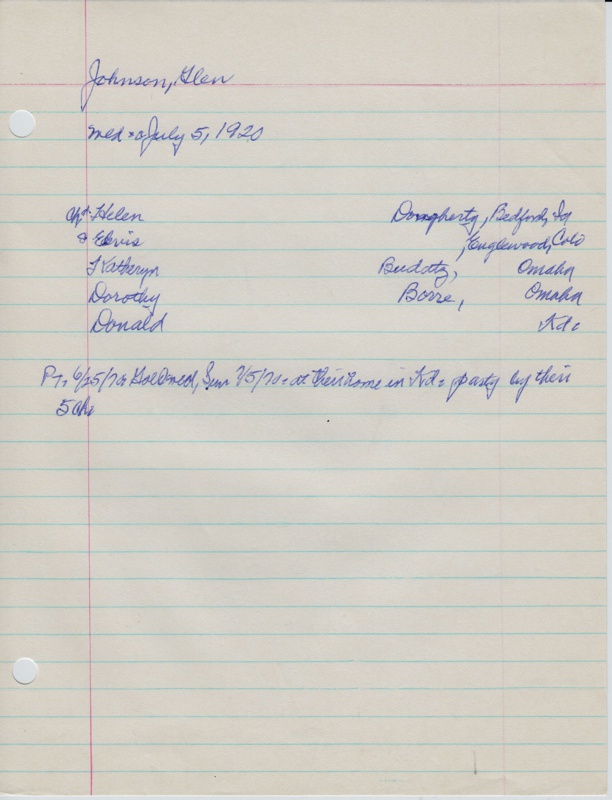 Johnson, Glen
med = July 5, 1920
Ch: Helen Dougherty, Bedford, Ia
& Elvis , Englewood, Colo
Katheryn Omaha
Dorothy Borre, Omaha
Donald Kd =
PT, 6/25/70 Gol Wed, Sun 7/5/70 = at their home in Kd = party by their
5 ch